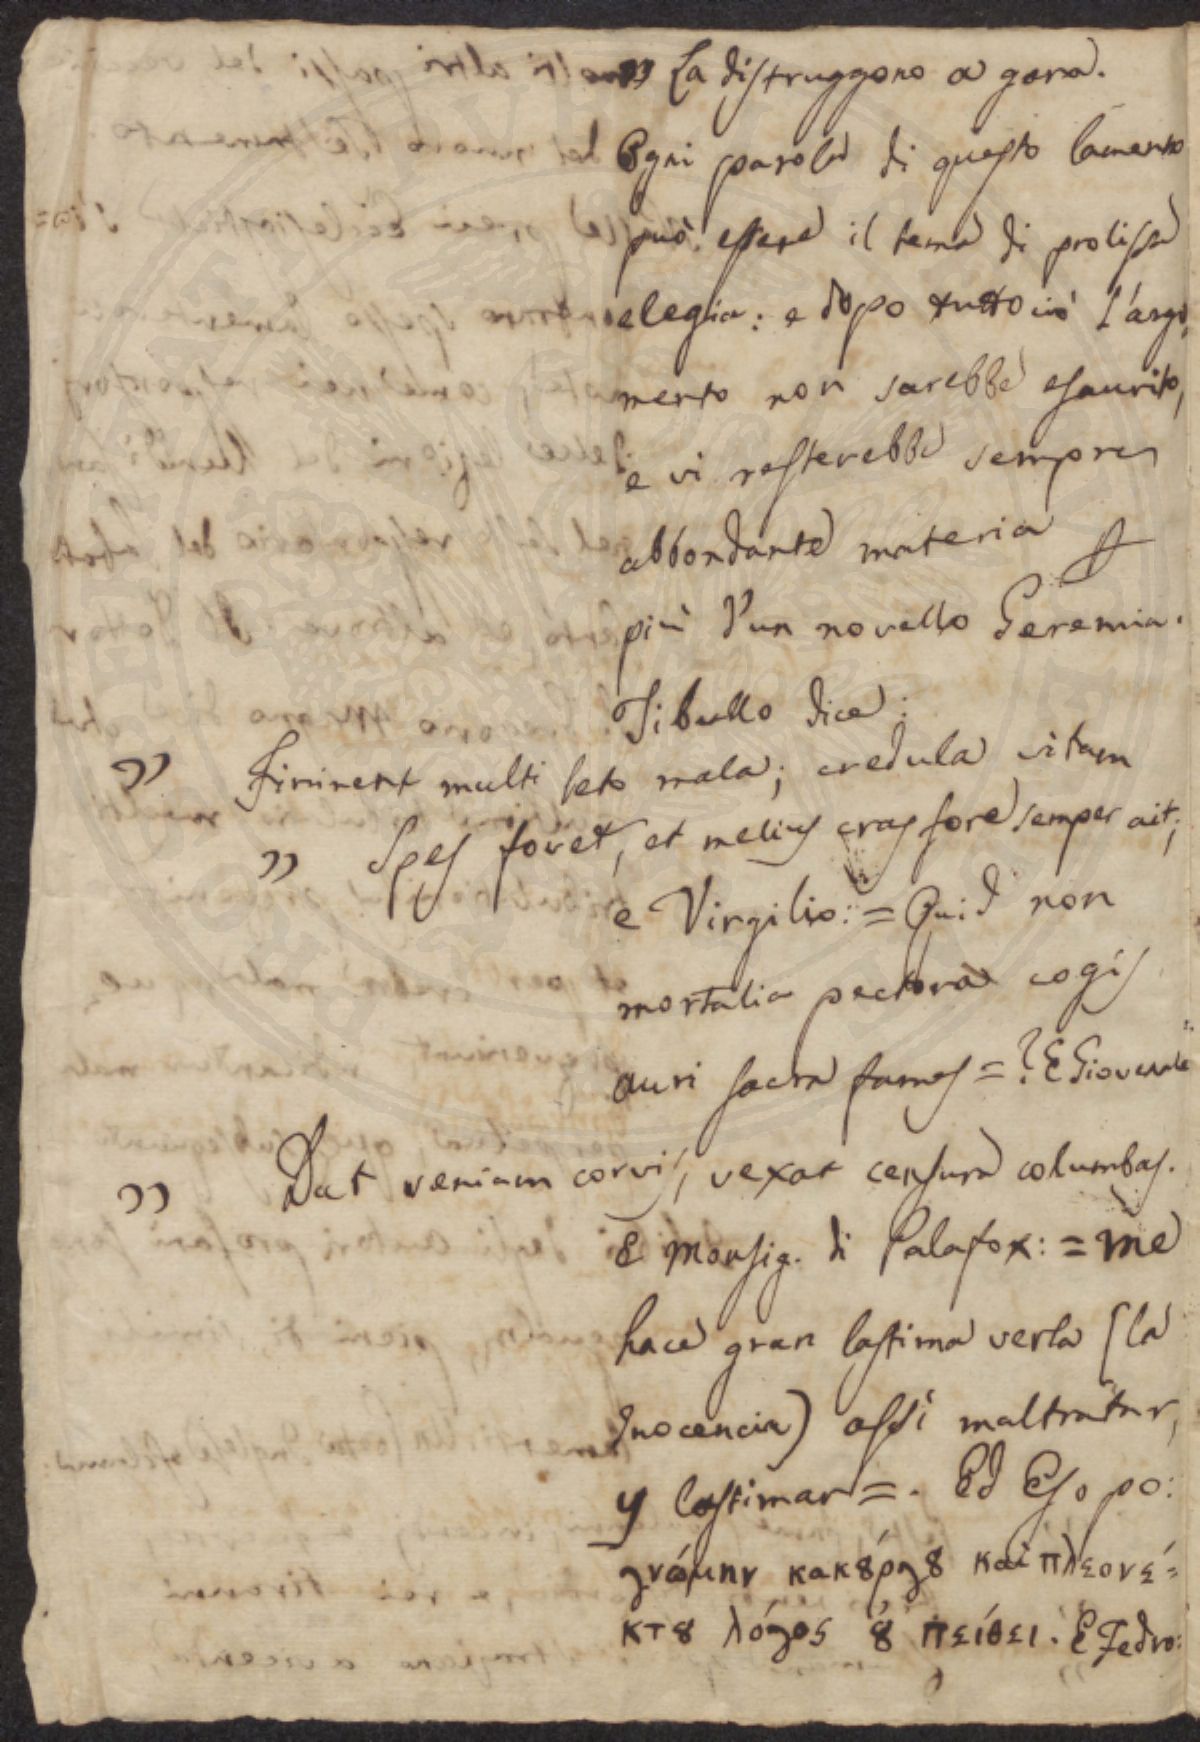 ” La distruggono a gara.
Ogni parola di questo lamento
può essere il tema di prolissa
elegia: e dopo tutto ciò l'argo,
mento non sarebbe esaurito,
e vi resterebbe sempre
abbondante materia
più d'un novello Geremia.
Tibullo dice:
” Iminent multi leto mala; credula vitam
” Spes fovet, et melius cras fore semper ait;
e Virgilio: = Quid non
mortalia pectora cogis
auri sacra fames = ? E Giovenale
” Dat veniam corvis, vexat censura columbas.
E Monsig. di Palafox: = me
hace gran lastima verla (la
Inocencia) assi maltratar,
y lastimar =. Ed Esopo:
γνώμην κακȣ́ργȣ καὶ πλεονέ=
κτȣ λόγος ȣ̓ πείθει. E Fedro: